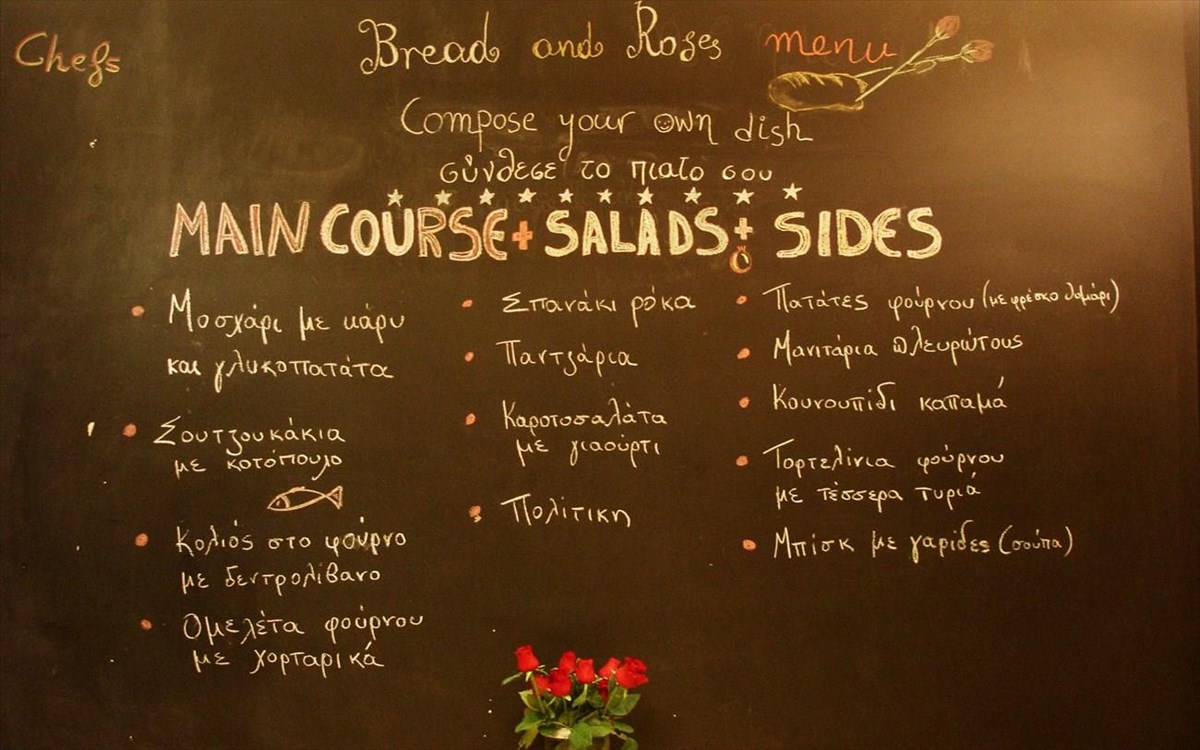 Chefs
Bread and Roses menu
Compose your own dish
σύνθεσε το πιατο σου
MAIN COURSE + SALADS + SIDES
Μοσχάρι με κάρυ
και γλυκοπατάτα
Σουτζουκάκια
με κοτόπουλο
Κολιός στο φούρνο
με δεντρολίβανο
Ομελέτα φούρνου
με χορταρικά
Σπανάκι ρόκα
Παντζάρια
Καροτοσαλάτα
με γιαούρτι
Πολίτικη
Πατάτες φούρνου (με φρέσκο θυμάρι)
Μανιτάρια πλευρώτους
Κουνουπίδι καπαμά
Τορτελίνια φούρνου
με τέσσερα τυριά
Μπίσκ με γαρίδες (σούπα)